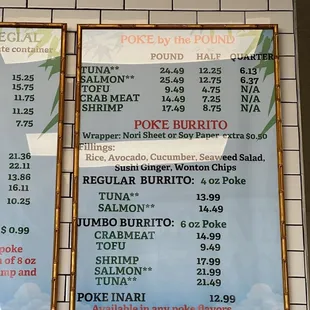 ECIAL
te container
15.25
15.75
11.75
11.25
7.75
21.36
22.11
13.86
16.11
10.25
$ 0.99
poke
n of 8 oz
mp and
POKE by the POUND
POUND HALF QUARTER
TUNA** 24.49 12.25 6.13
SALMON** 25.49 12.75 6.37
TOFU 9.49 4.75 N/A
CRAB MEAT 14.49 7.25 N/A
SHRIMP 17.49 8.75 N/A
POKE BURRITO
Wrapper: Nori Sheet or Soy Paper, extra $0.50
Fillings:
Rice, Avocado, Cucumber, Seaweed Salad,
Sushi Ginger, Wonton Chips
REGULAR BURRITO: 4 oz Poke
TUNA** 13.99
SALMON** 14.49
JUMBO BURRITO: 6 oz Poke
CRABMEAT 14.99
TOFU 9.49
SHRIMP 17.99
SALMON** 21.99
TUNA** 21.49
POKE INARI 12.99
Available in any poke flavors